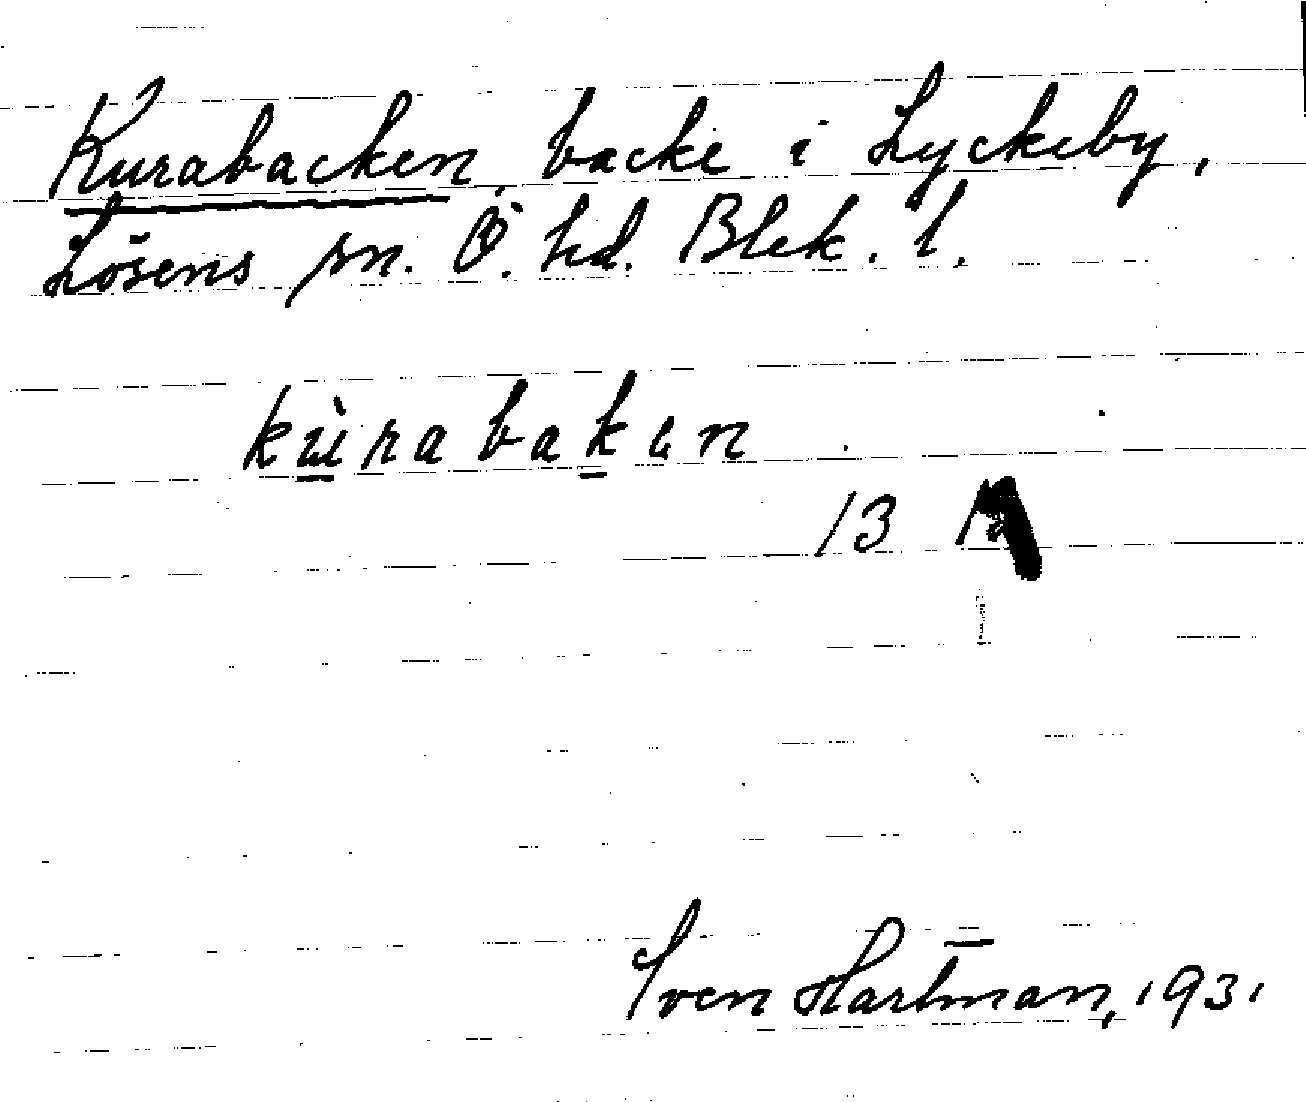 Kurabacken, backe i Lyckeby,
Lösens sn. Ö. hd. Blek. l.
kùrabakɩn
13
Sven Hartman, 1931